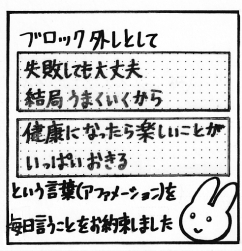 ブロック外しとして
失敗しても大丈夫
結局うまくいくから
健康になったら楽しいことが
いっぱいおきる
という言葉(アファメーション)を
毎日言うことをお約束しました